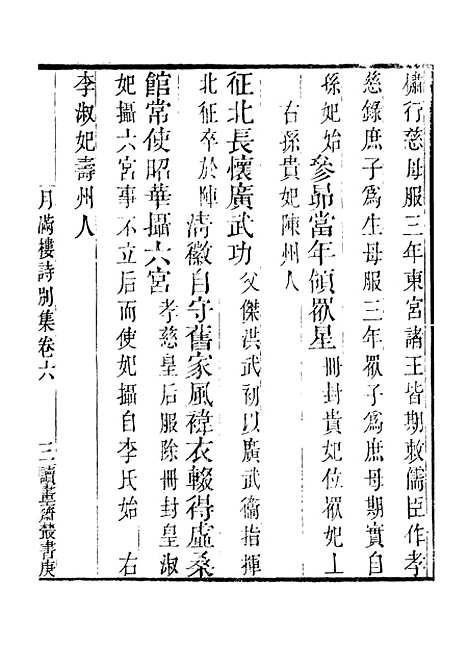 橚行慈母服三年東宮諸王皆期敕儒臣作孝
慈錄庶子爲生母服三年衆子爲庶母期實自
孫妃始參昴當年領衆星冊封貴妃位衆妃上
右孫貴妃陳州人
征北長懷廣武功父傑洪武初以廣武衞指揮
北征卒於陣清徽自守舊家風褘衣輟得虛桑
館常使昭華攝六宮孝慈皇后服除冊封皇淑
妃攝六宮事不立后而使妃攝自李氏始右
李淑妃壽州人
月滿樓詩別集卷六
三
讀畫齋叢書庚